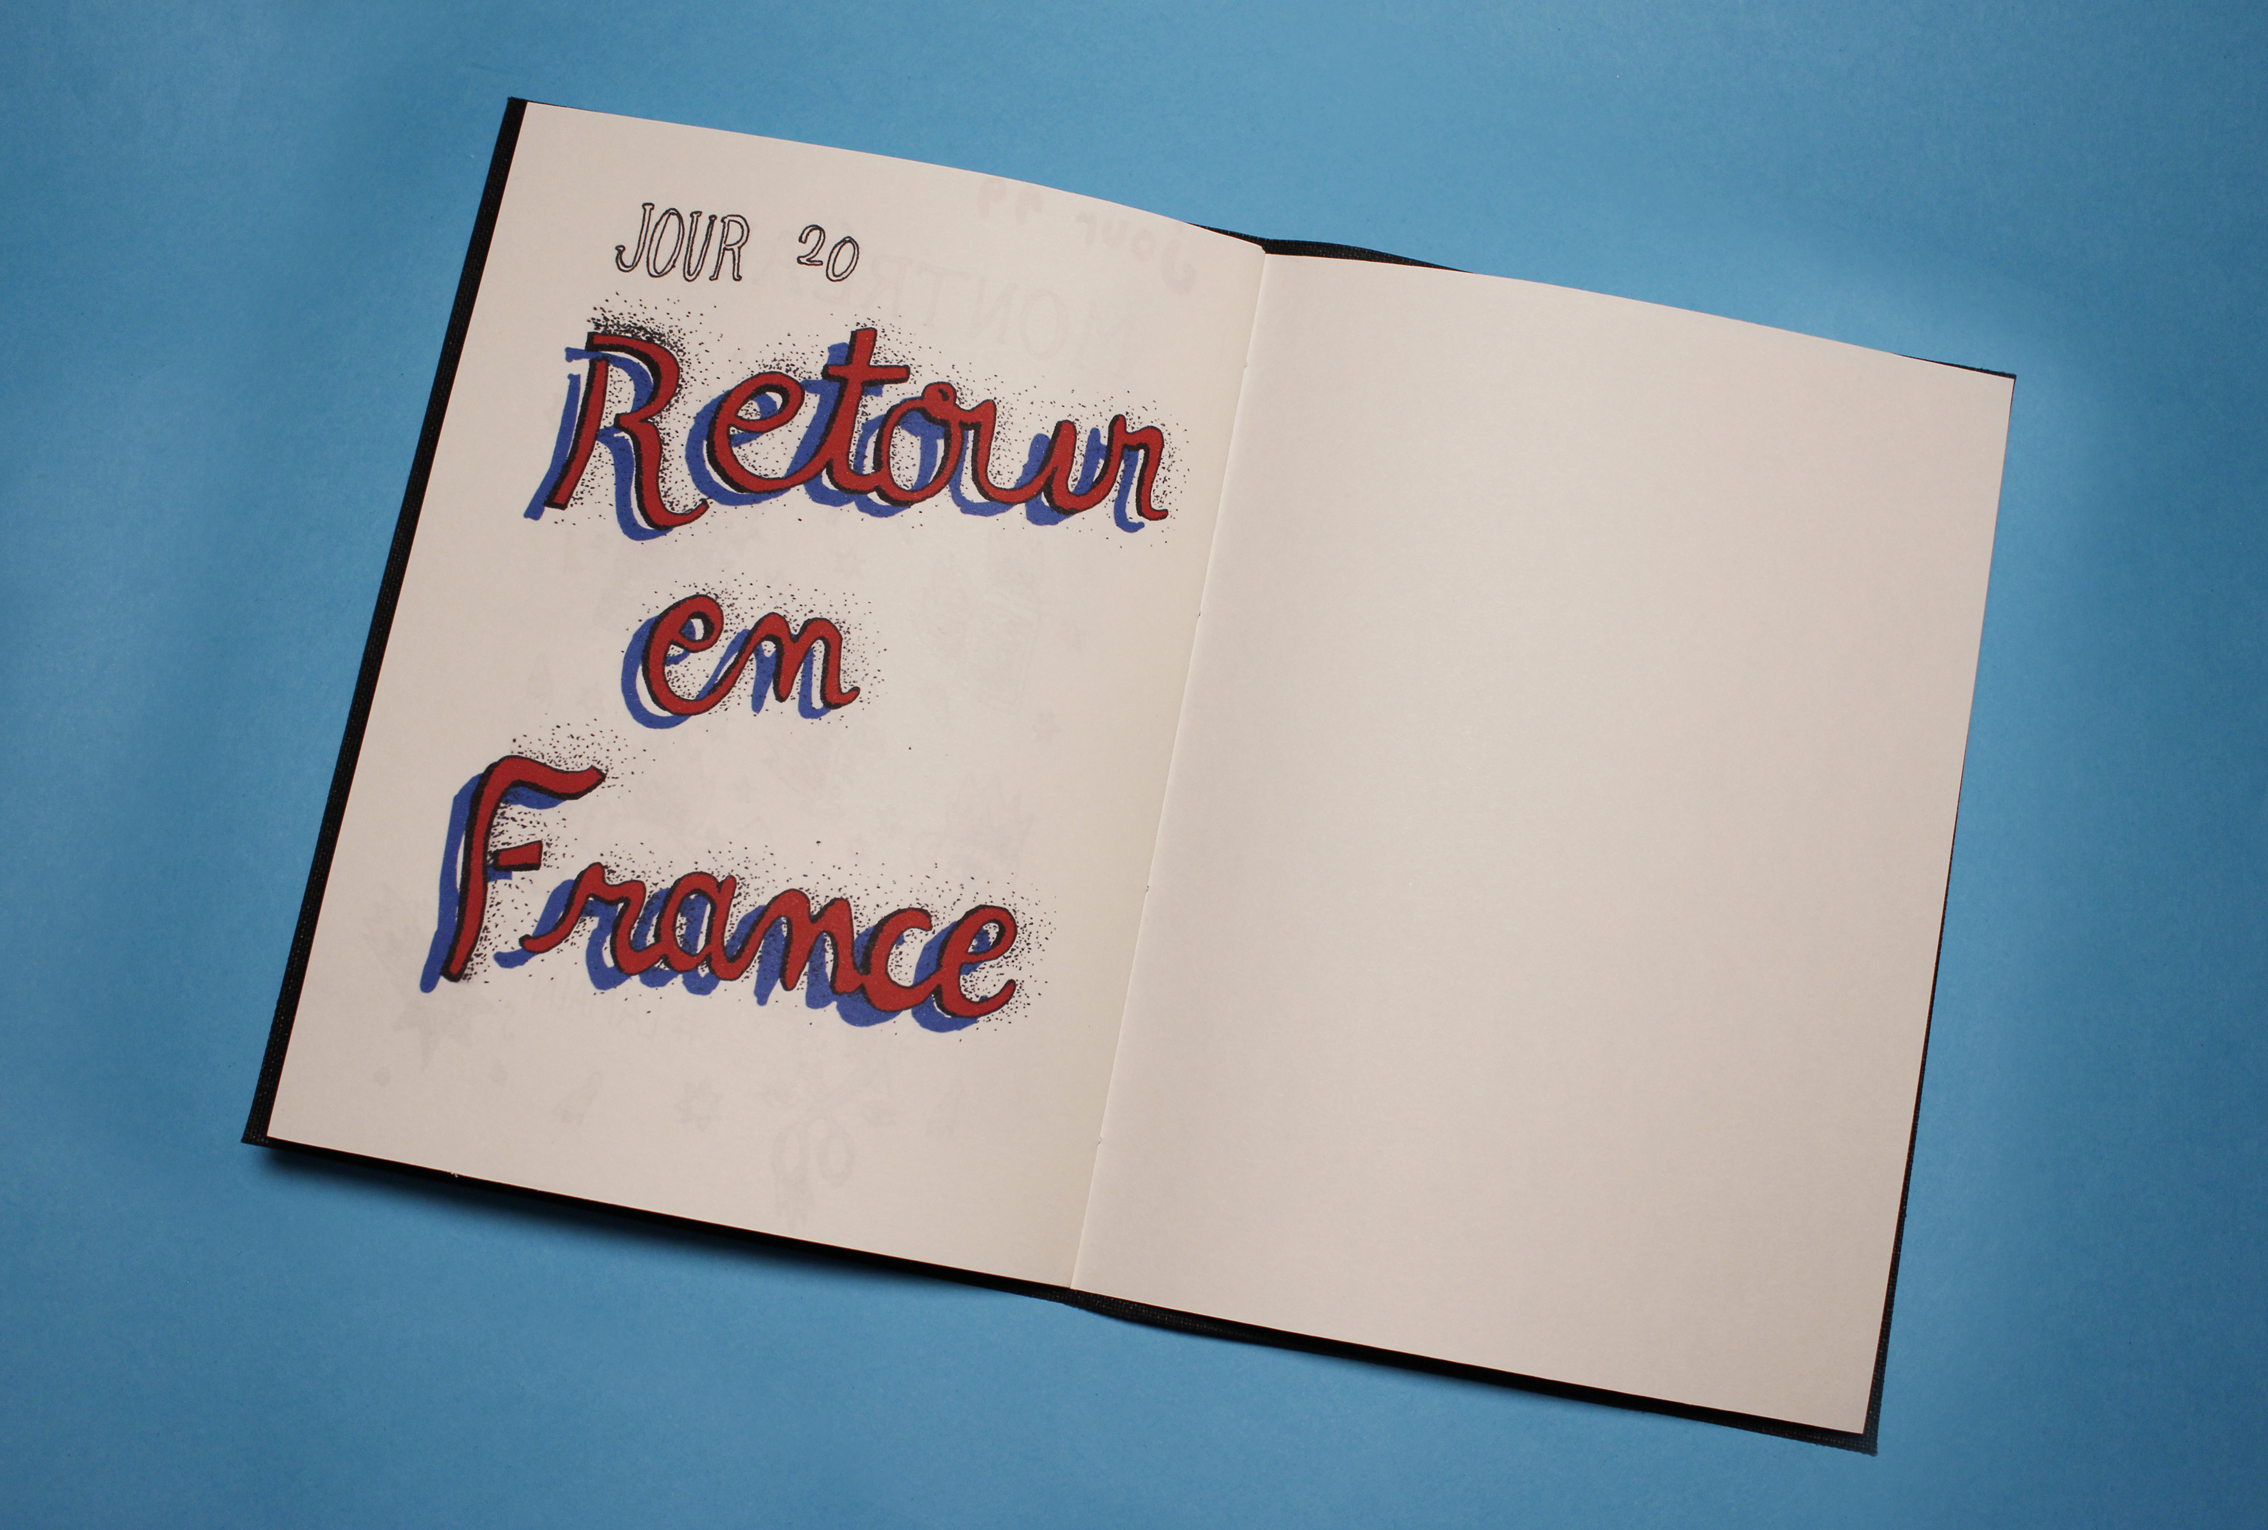 JOUR 20
Retour
en
France